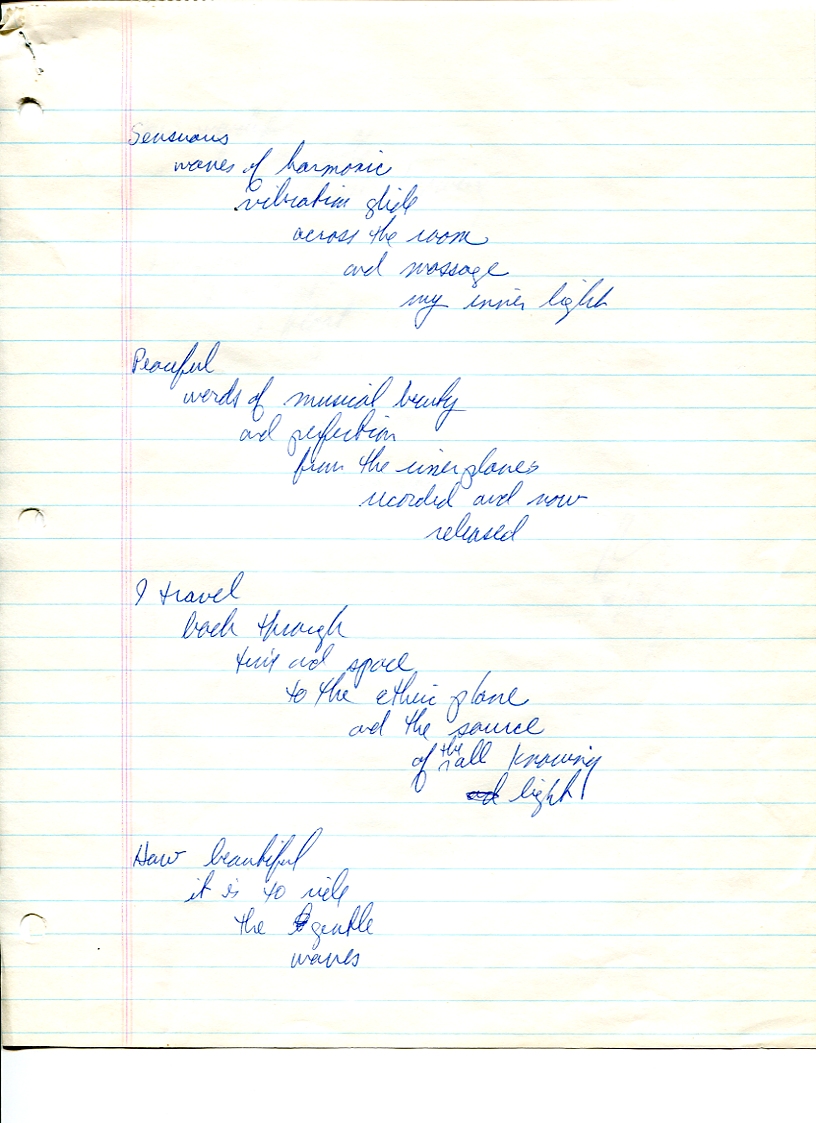 Sensuous
waves of harmonic
vibration glide
across the room
and massage
my inner light
Peaceful
words of musical beauty
and perfection
from the inner planes
recorded and now
released
I travel
back through
time and space
to the etheric plane
and the source
of the all knowing
light
How beautiful
it is to ride
the gentle
waves